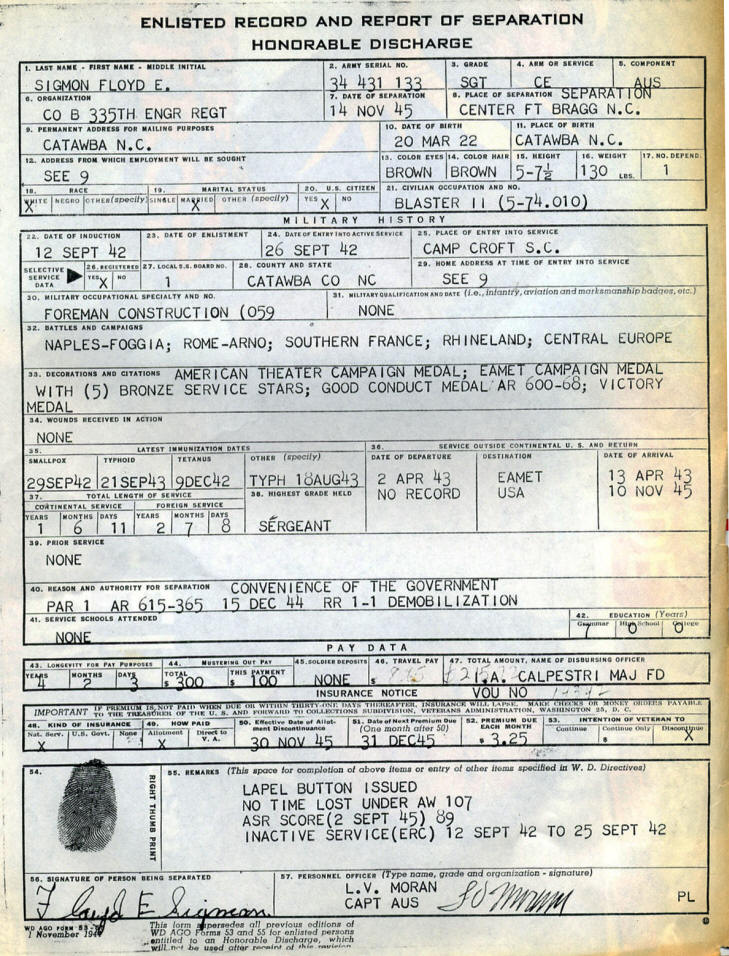 ENLISTED RECORD AND REPORT OF SEPARATION
HONORABLE DISCHARGE
1. LAST NAME - FIRST NAME - MIDDLE INITIAL 2. ARMY SERIAL NO. 3. GRADE 4. ARM OR SERVICE 5. COMPONENT
SIGMON FLOYD E. 34 431 133 SGT CE AUS
6. ORGANIZATION 7. DATE OF SEPARATION 8. PLACE OF SEPARATION SEPARATION
CO B 335TH ENGR REGT 14 NOV 45 CENTER FT BRAGG N.C.
9. PERMANENT ADDRESS FOR MAILING PURPOSES 10. DATE OF BIRTH 11. PLACE OF BIRTH
CATAWBA N.C. 20 MAR 22 CATAWBA N.C.
12. ADDRESS FROM WHICH EMPLOYMENT WILL BE SOUGHT 13. COLOR EYES 14. COLOR HAIR 15. HEIGHT 16. WEIGHT 17. NO. DEPEND.
SEE 9 BROWN BROWN 5-7½ 130 LBS. 1
18. RACE 19. MARITAL STATUS 20. U.S. CITIZEN 21. CIVILIAN OCCUPATION AND NO.
WHITE NEGRO OTHER (specify) SINGLE MARRIED OTHER (specify) YES NO
X X X BLASTER II (5-74.010)
MILITARY HISTORY
22. DATE OF INDUCTION 23. DATE OF ENLISTMENT 24. DATE OF ENTRY INTO ACTIVE SERVICE 25. PLACE OF ENTRY INTO SERVICE
12 SEPT 42 26 SEPT 42 CAMP CROFT S.C.
SELECTIVE SERVICE DATA 26. REGISTERED YES NO 27. LOCAL S.S. BOARD NO. 28. COUNTY AND STATE 29. HOME ADDRESS AT TIME OF ENTRY INTO SERVICE
X 1 CATAWBA CO NC SEE 9
30. MILITARY OCCUPATIONAL SPECIALTY AND NO. 31. MILITARY QUALIFICATION AND DATE (i.e., infantry, aviation and marksmanship badges, etc.)
FOREMAN CONSTRUCTION (059 NONE
32. BATTLES AND CAMPAIGNS
NAPLES-FOGGIA; ROME-ARNO; SOUTHERN FRANCE; RHINELAND; CENTRAL EUROPE
33. DECORATIONS AND CITATIONS AMERICAN THEATER CAMPAIGN MEDAL; EAMET CAMPAIGN MEDAL
WITH (5) BRONZE SERVICE STARS; GOOD CONDUCT MEDAL AR 600-68; VICTORY
MEDAL
34. WOUNDS RECEIVED IN ACTION
NONE
35. LATEST IMMUNIZATION DATES 36. SERVICE OUTSIDE CONTINENTAL U. S. AND RETURN
SMALLPOX TYPHOID TETANUS OTHER (specify) DATE OF DEPARTURE DESTINATION DATE OF ARRIVAL
29SEP42 21SEP43 9DEC42 TYPH 18AUG43 2 APR 43 EAMET 13 APR 43
NO RECORD USA 10 NOV 45
37. TOTAL LENGTH OF SERVICE 38. HIGHEST GRADE HELD
CONTINENTAL SERVICE FOREIGN SERVICE
YEARS MONTHS DAYS YEARS MONTHS DAYS
1 6 11 2 7 8 SERGEANT
39. PRIOR SERVICE
NONE
40. REASON AND AUTHORITY FOR SEPARATION CONVENIENCE OF THE GOVERNMENT
PAR 1 AR 615-365 15 DEC 44 RR 1-1 DEMOBILIZATION
41. SERVICE SCHOOLS ATTENDED 42. EDUCATION (Years)
Grammar High School College
NONE 7 0 0
PAY DATA
43. LONGEVITY FOR PAY PURPOSES 44. MUSTERING OUT PAY 45. SOLDIER DEPOSITS 46. TRAVEL PAY 47. TOTAL AMOUNT, NAME OF DISBURSING OFFICER
YEARS MONTHS DAYS TOTAL THIS PAYMENT
4 2 3 $ 300 $ 100 NONE $ I.A. CALPESTRI MAJ FD
INSURANCE NOTICE VOU NO
IMPORTANT IF PREMIUM IS NOT PAID WHEN DUE OR WITHIN THIRTY-ONE DAYS THEREAFTER, INSURANCE WILL LAPSE. MAKE CHECKS OR MONEY ORDERS PAYABLE
TO THE TREASURER OF THE U. S. AND FORWARD TO COLLECTIONS SUBDIVISION, VETERANS ADMINISTRATION, WASHINGTON 25, D. C.
48. KIND OF INSURANCE 49. HOW PAID 50. Effective Date of Allotment Discontinuance 51. Date of Next Premium Due (One month after 50) 52. PREMIUM DUE EACH MONTH 53. INTENTION OF VETERAN TO
Nat. Serv. U.S. Govt. None Allotment Direct to V. A. Continue Continue Only Discontinue
X X 30 NOV 45 31 DEC45 $ 3.25 X
54. 55. REMARKS (This space for completion of above items or entry of other items specified in W. D. Directives)
RIGHT THUMB PRINT
LAPEL BUTTON ISSUED
NO TIME LOST UNDER AW 107
ASR SCORE(2 SEPT 45) 89
INACTIVE SERVICE(ERC) 12 SEPT 42 TO 25 SEPT 42
56. SIGNATURE OF PERSON BEING SEPARATED 57. PERSONNEL OFFICER (Type name, grade and organization - signature)
Floyd E Sigmon L.V. MORAN
CAPT AUS LV Moran PL
WD AGO FORM 53-
1 November 194
This form supersedes all previous editions of
WD AGO Forms 53 and 55 for enlisted persons
entitled to an Honorable Discharge, which
will not be used after receipt of this revision.